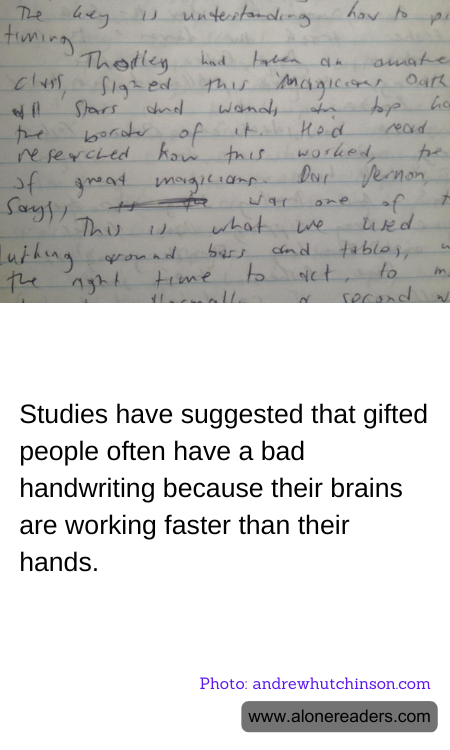 The key is understanding how to
timing
Thodley had taken an
class, signed this Magicians Oath
stars and wands, in top
the border of it. He'd read
researched how this worked, the
of great magicians. Dai Vernon,
says, was one of
This is what we used
around bars and tables,
the right time to act, to
a second
Studies have suggested that gifted
people often have a bad
handwriting because their brains
are working faster than their
hands.
Photo: andrewhutchinson.com
www.alonereaders.com